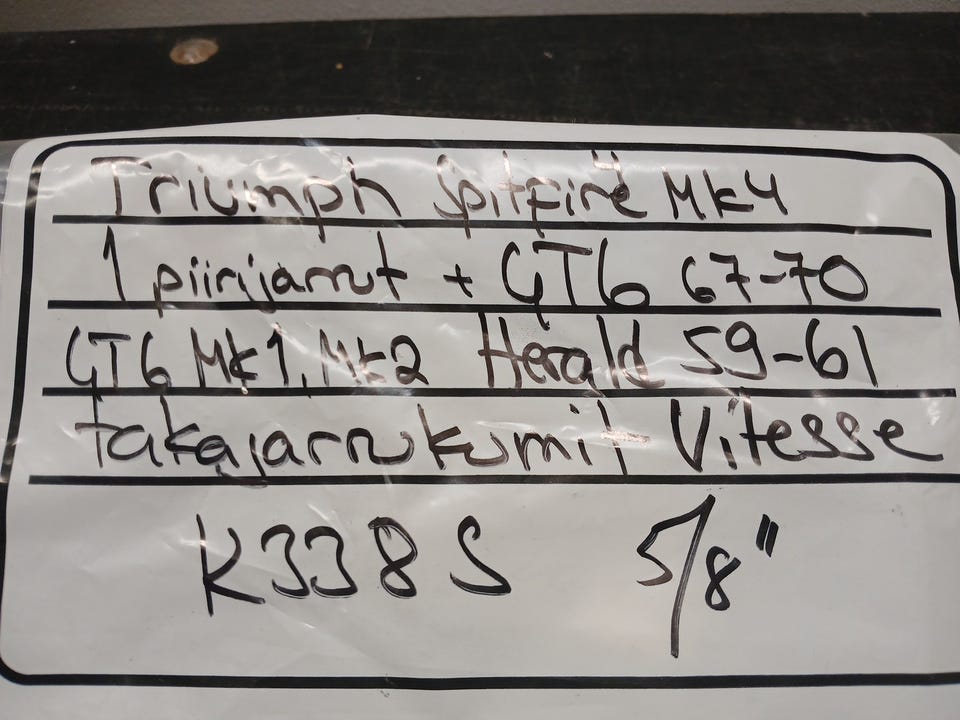 Triumph Spitfire Mk4
1 piirijarrut + GT6 67-70
GT6 Mk1, Mk2 Herald 59-61
takajarrukumit Vitesse
K338S 5/8"